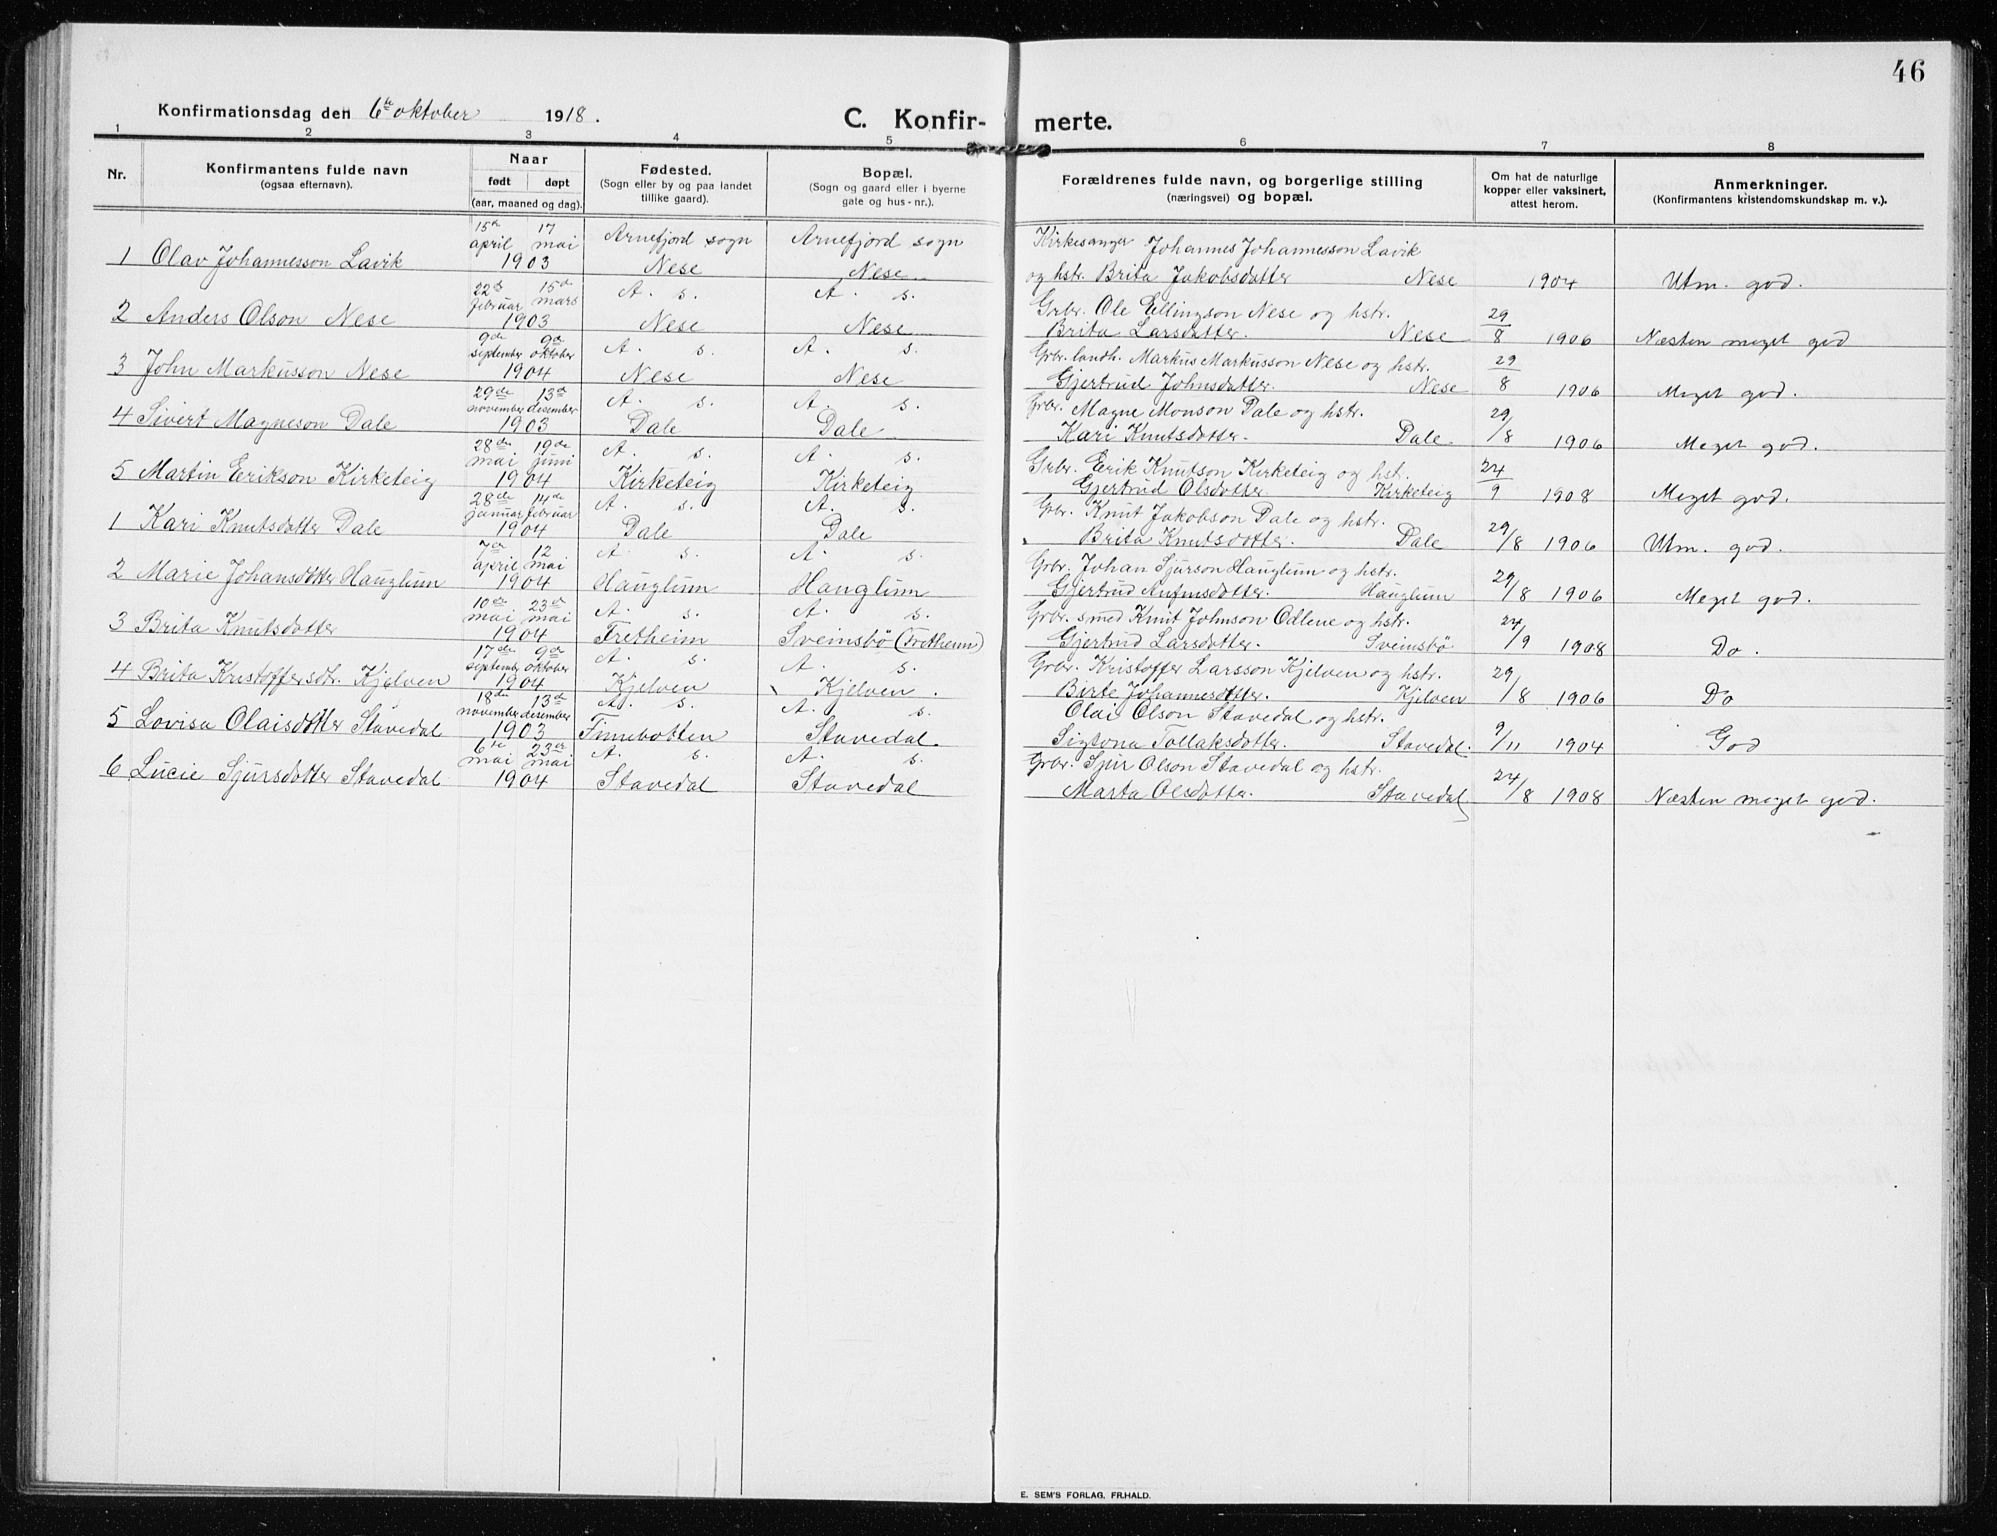 46
Konfirmationsdag den 6te oktober 1918.
C. Konfir- merte.
1 2 3 4 5 6 7 8
Nr.
Konfirmantens fulde navn
(ogsaa efternavn).
Naar
født døpt
(aar, maaned og dag).
Fødested.
(Sogn eller by og paa landet
tillike gaard).
Bopæl.
(Sogn og gaard eller i byerne
gate og hus-nr.).
Forældrenes fulde navn, og borgerlige stilling
(næringsvei) og bopæl.
Om hat de naturlige
kopper eller vaksinert,
attest herom.
Anmerkninger.
(Konfirmantens kristendomskundskap m. v.).
15de 17
april mai Arnefjord sogn Arnefjord sogn Kirkesanger Johannes Johannesson Lavik
1 Olav Johannesson Lavik 1903 Nese Nese og hstr. Brita Jakobsdatter Nese 1904 Utm. god.
22de 15de
februar mars A. s. A. s. Grbr. Ole Ellingson Nese og hstr. 29
2 Anders Olson Nese 1903 Nese Nese Brita Larsdatter. Nese 8 1906 Næsten meget god
9de 9de
september oktober A. s. A. s. Grbr. landh. Markus Markusson Nese og hstr. 29
3 John Markusson Nese 1904 Nese Nese Gjertrud Johnsdatter. Nese 8 1906 Meget god.
29de 13de
november desember A. s. A. s. Grbr. Magne Monson Dale og hstr.
4 Sivert Magneson Dale 1903 Dale Dale Kari Knutsdotter. Dale 29/8 1906 Meget god.
28de 19de
mai juni A. s. A. s. Grbr. Erik Knutson Kirketeig og hstr. 24
5 Martin Erikson Kirketeig 1904 Kirketeig Kirketeig Gjertrud Olsdotter Kirketeig 9 1908 Meget god.
28de 14de
januar februar A. s. A. s. Grbr. Knut Jakobson Dale og hstr.
1 Kari Knutsdotter Dale 1904 Dale Dale Brita Knutsdotter. Dale 29/8 1906 Utm. god.
7de 12
april mai A. s. A. s. Grbr. Johan Sjurson Hauglum og hstr.
2 Marie Johansdotter Hauglum 1904 Hauglum Hauglum Gjertrud Hauglum 29/8 1906 Meget god.
10de 23de
mai mai A. s. A. s. Grbr. smed Knut Johnson Odlene og hstr.
3 Brita Knutsdotter 1904 Fretheim Sveinsbø (Fretheim) Gjertrud Larsdotter. Sveinsbø 24/9 1908 Do.
17de 9de
september oktober A. s. A. s. Grbr. Kristoffer Larsson Kjelven og hstr.
4 Brita Kristoffersdtr. Kjelven 1904 Kjelven Kjelven. Birte Johannesdotter. Kjelven 29/8 1906 Do
18de 13de
november desember A. s. A. s. Olai Olson Stavedal og hstr.
5 Lovisa Olaisdotter Stavedal 1903 Finnebotten Stavedal. Sigtona Tollaksdotter. Stavedal. 9/11 1904 God
6te 23de
mai mai A. s. A. s. Grbr. Sjur Olson Stavedal og hstr.
6 Lucie Sjursdotter Stavedal 1904 Stavedal Stavedal Marta Olsdotter. Stavedal 24/8 1908 Næsten meget god.
E. SEM'S FORLAG, FR.HALD.